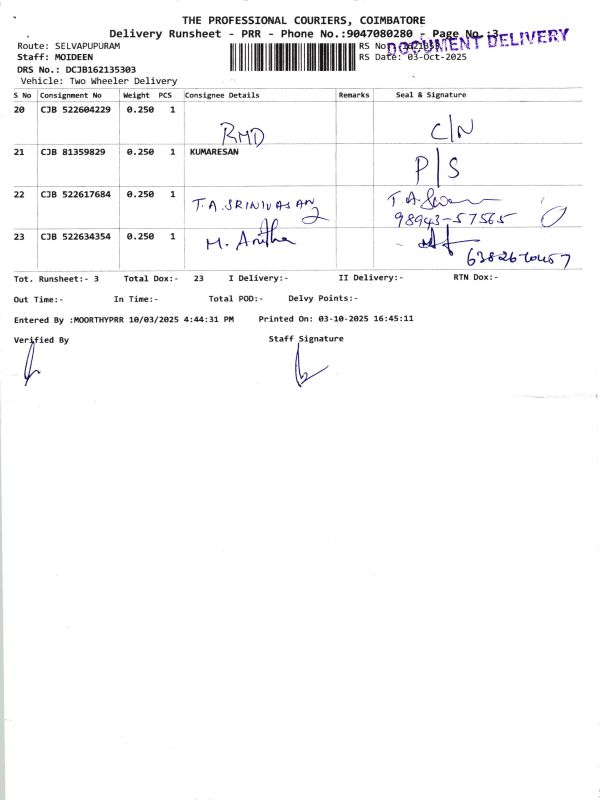 THE PROFESSIONAL COURIERS, COIMBATORE
Delivery Runsheet - PRR - Phone No.:9047080280 - Page No.:3
DOCUMENT DELIVERY
Route: SELVAPUPURAM RS No
Staff: MOIDEEN RS Date: 03-Oct-2025
DRS No.: DCJB162135303
Vehicle: Two Wheeler Delivery
S No Consignment No Weight PCS Consignee Details Remarks Seal & Signature
20 CJB 522604229 0.250 1 RMD C/N
21 CJB 81359829 0.250 1 KUMARESAN P/S
22 CJB 522617684 0.250 1 T.A.SRINIVASAN T.A.
98943-57565
23 CJB 522634354 0.250 1 M. Anitha
Tot. Runsheet:- 3 Total Dox:- 23 I Delivery:- II Delivery:- RTN Dox:-
Out Time:- In Time:- Total POD:- Delvy Points:-
Entered By :MOORTHYPRR 10/03/2025 4:44:31 PM Printed On: 03-10-2025 16:45:11
Verified By Staff Signature